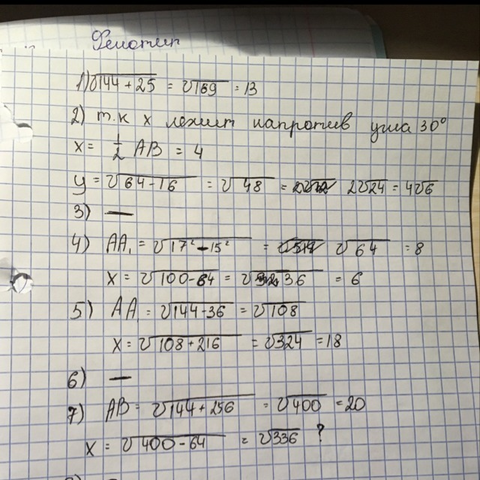 Фенотип
1) √144 + 25 = √169 = 13
2) т.к х лежит напротив угла 30°
x = 1/2 AB = 4
y = √64 - 16 = √48 = 2√24 = 4√6
3) —
4) AA₁ = √17² - 15² = √64 = 8
x = √100 - 64 = √36 = 6
5) AA = √144 - 36 = √108
x = √108 + 216 = √324 = 18
6) —
7) AB = √144 + 256 = √400 = 20
x = √400 - 64 = √336 ?